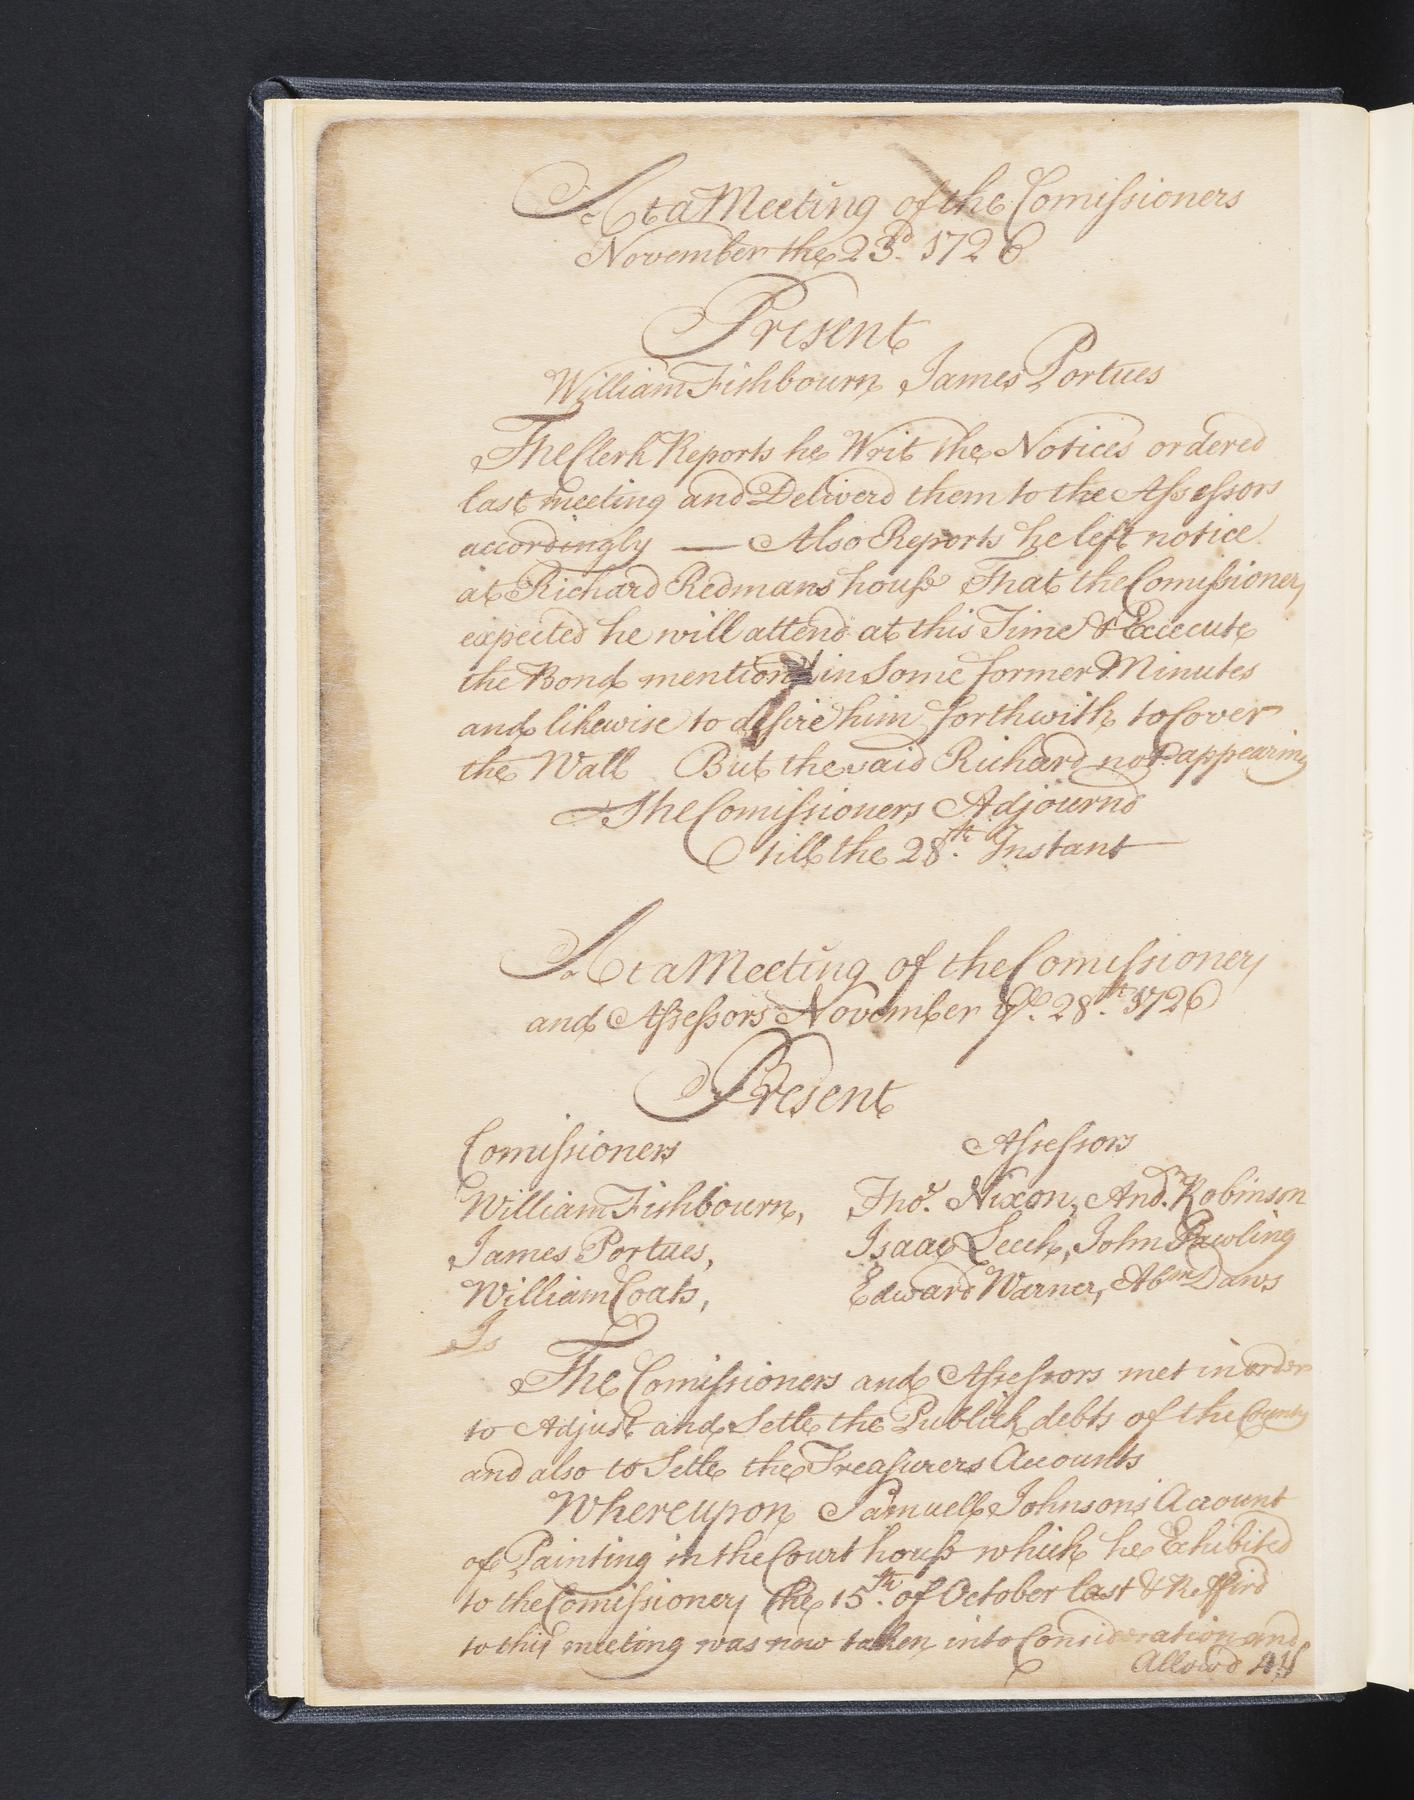 At a Meeting of the Comissioners
November the 23d. 1726
Present
William Fishbourn James Portues
The Clerk Reports he Writ the Notices ordered
last meeting and Deliverd them to the Assessors
accordingly — Also Reports he left notice
at Richard Redmans house That the Comissioners
expected he will attend at this Time & Execute
the Bond mentiond in Some former Minutes
and likewise to desire him forthwith to Cover
the Wall But the said Richard not appearing
The Comissioners Adjournd
till the 28th. Instant
At a Meeting of the Comissioners
and Assessors November ye. 28th. 1726
Present
Comissioners Assessors
William Fishbourn, Tho. Nixon, And. Robinson
James Portues, Isaac Leech, John Rawling
William Coats, Edward Warner, Abm Daws
Is
The Comissioners and Assessors met in order
to Adjust and Setle the Publick debts of the County
and also to Setle the Treasurers Accounts
Whereupon Samuell Johnsons Account
of Painting in the Court house which he Exhibited
to the Comissioners the 15th. of October last & Refferd
to this meeting was now taken into Consideration and
Allowd